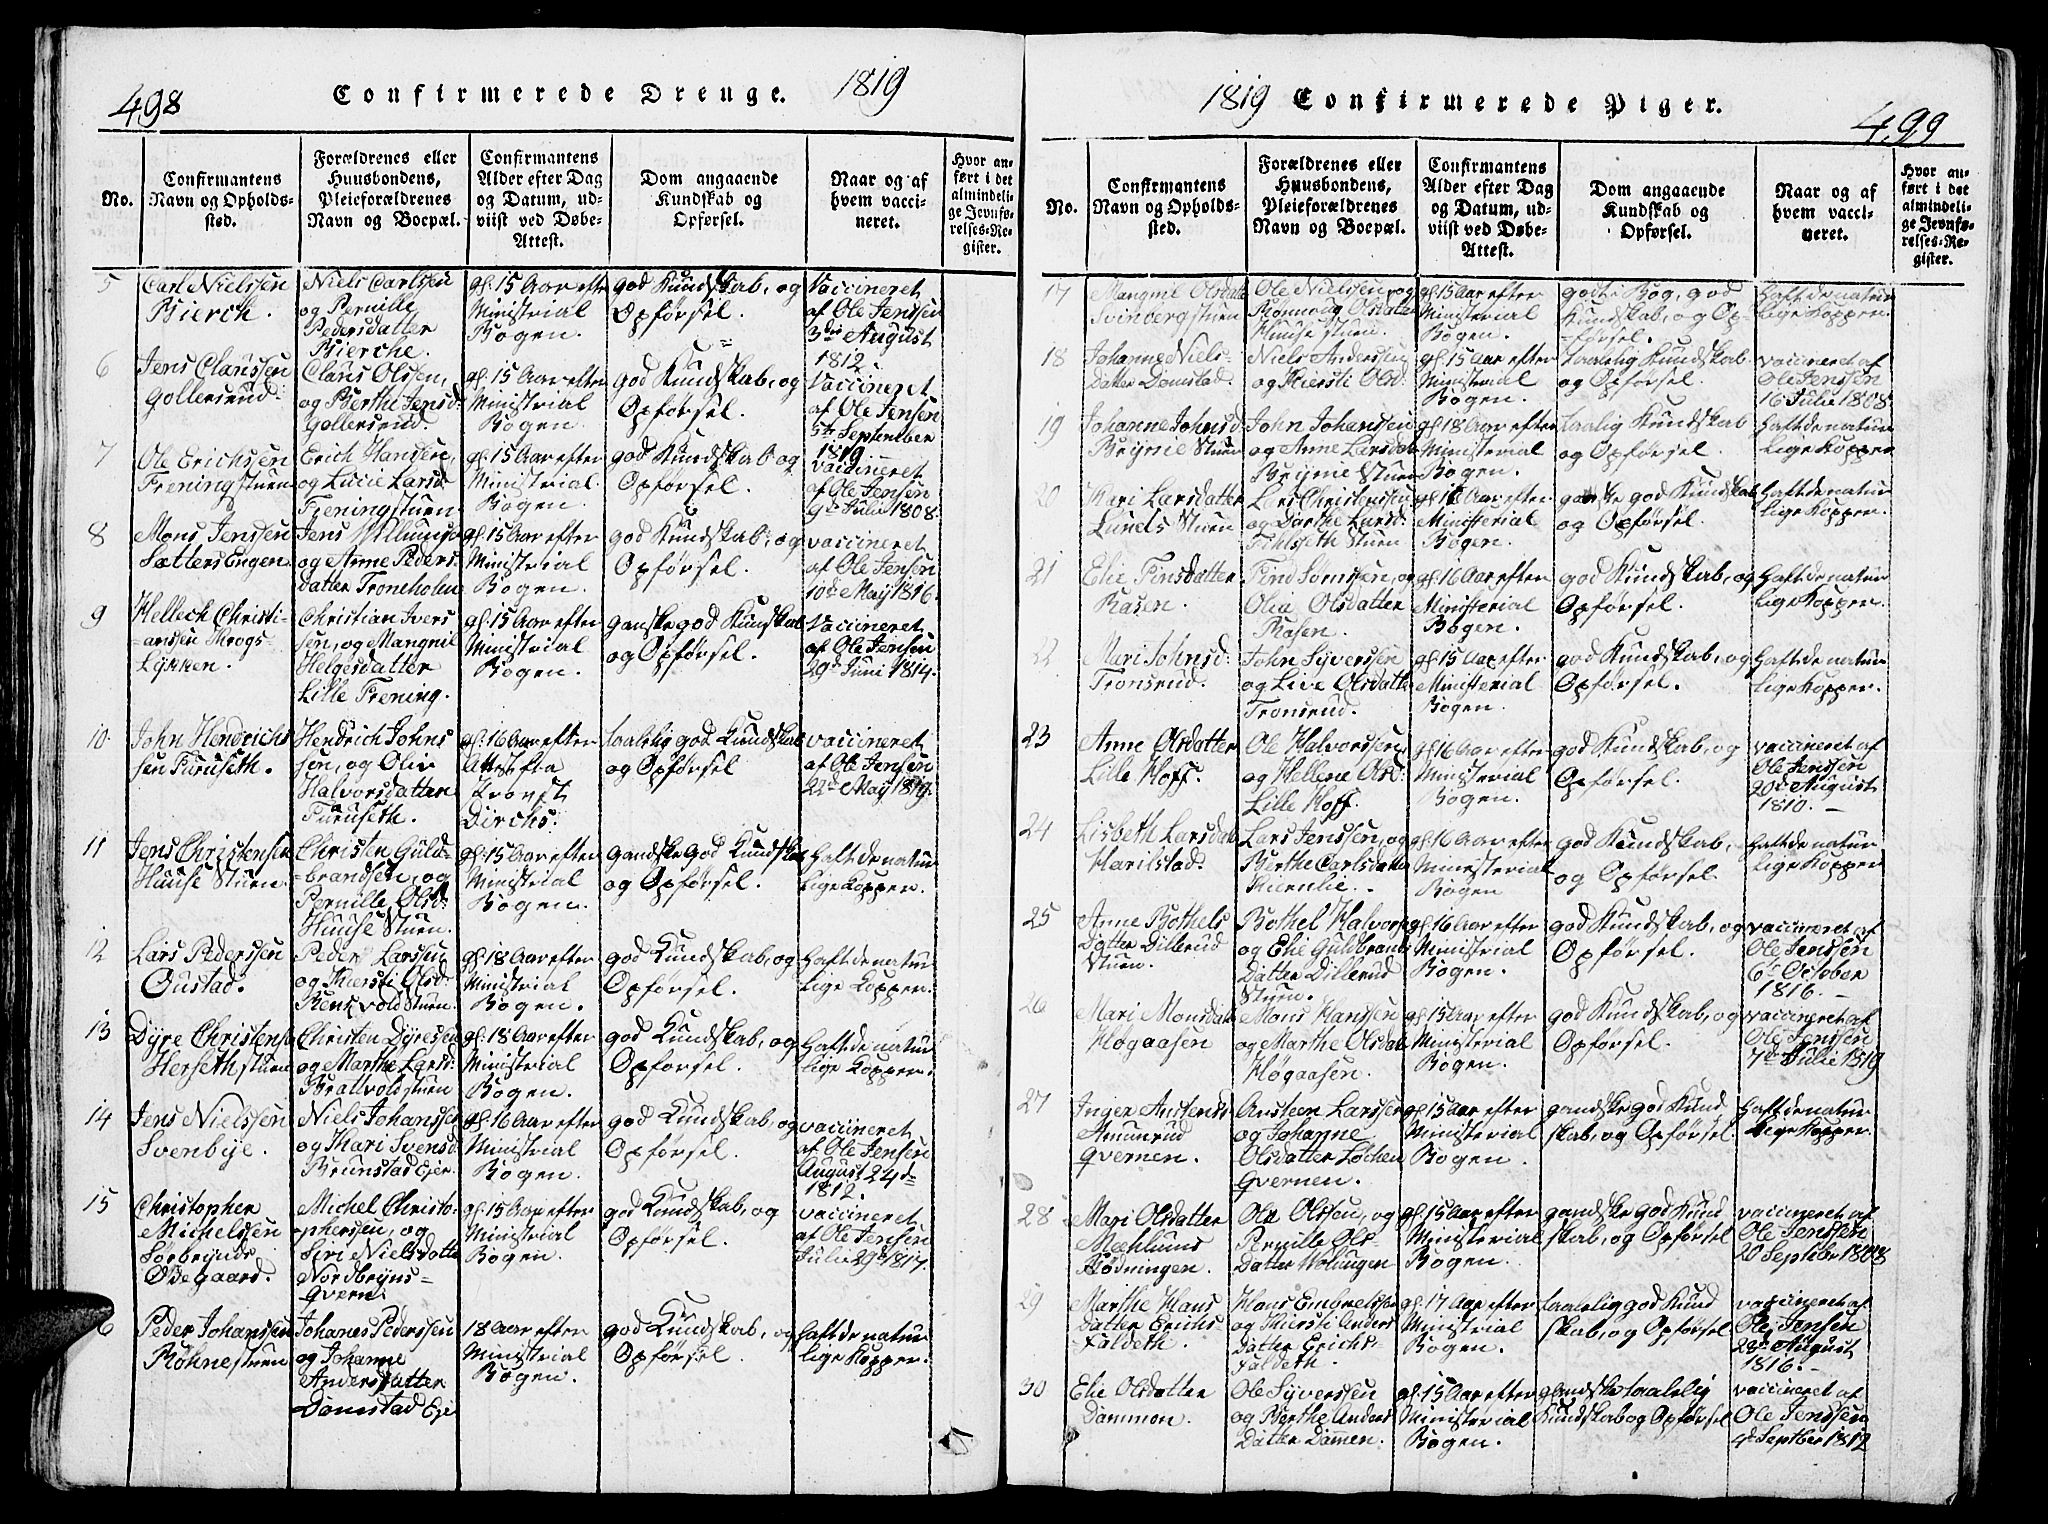 498
Confirmerede Drenge.
1819
No.
Confirmantens
Navn og Opholds-
sted.
Forældrenes eller
Huusbondens,
Pleieforældrenes
Navn og Boepæl.
Confirmantens
Alder efter Dag
og Datum, ud-
viist ved Døbe-
Attest.
Dom angaaende
Kundskab og
Opførsel.
Naar og af
hvem vacci-
neret.
Hvor an-
ført i det
almindeli-
ge Jevnfø-
relses-Re-
gister.
5
Carl Nielssen
Bierch.
Niels Carlssen
og Pernille
Pedersdatter
Bierche.
gl. 15 Aar efter
Ministrial
Bogen.
god Kundskab, og
Opførsel.
Vaccineret
af Ole Jenssen
3die August
1812.
6
Jens Claussen
Gollersrud.
Claus Olsen,
og Berthe Jensd.
Gollersrud.
gl. 15 Aar efter
Ministrial
Bogen.
god Kundskab, og
Opførsel.
Vaccineret
af Ole Jensen
5te September
1819.
7
Ole Erichsen
Freningstuen
Erich Hansen,
og Lucie Larsd
Freningstuen
gl. 15 Aar efter
Ministrial
Bogen.
god Kundskab og
Opførsel.
vaccineret
af Ole Jensen
9de Julii 1808.
8
Mons Jenssen
Sætters Engen.
Jens Willumsen
og Anne Peders
datter Troneholen
gl. 15 Aar efter
Ministrial
Bogen.
god Kundskab, og
Opførsel.
vaccineret
af Ole Jensen
10de May 1816.
9
Hellech Christi-
ansen Krogs-
Lykken.
Christian Ivers
sen, og Mangnil
Helgesdatter
Lille Frening.
gl. 15 Aar efter
Ministrial
Bogen.
ganske god Kunskab
og Opførsel.
Vaccineret
af Ole Jensen
29de Juni 1814.
10.
John Hendrichs
sen Furuseth.
Hendrich Johns
sen, og Oliv
Halvorsdatter
Furuseth.
gl. 16 Aar efter
Attest fra
Provst
Dirchs.
taalelig god Kundskab
og Opførsel
vaccineret
af Ole Jensen
22de May 1819.
11
Jens Christensen
Huuse Stuen.
Christen Guld-
brandsen, og
Pernille Olsd:
Huuse Stuen.
gl. 15 Aar efter
Ministrial
Bogen.
gandske god Kundskab
og Opførsel.
haft de natur
lige Kopper.
12
Lars Pederssen
Oustad.
Peder Larssen
og Kiersti Olsd:
Renskvold Stuen.
gl. 18 Aar efter
Ministrial
Bogen.
god Kundskab, og
Opførsel.
haft de natur
lige Kopper.
13
Dyre Christensen
Herseth stuen
Christen Dyresen
og Marthe Larsd:
Brattvold stuen
gl. 18 Aar efter
Ministrial
Bogen.
god Kundskab, og
Opførsel.
haft de natur
lige Kopper.
14
Jens Nielssen
Svenbye.
Niels Johanssen
og Kari Svensd
Brunstad Eier.
gl. 16 Aar efter
Ministrial
Bogen.
god Kundskab, og
Opførsel.
vaccineret
af Ole Jensen
August 24de
1812.
15
Christopher
Michelssen
Sørbrynds
Ødegaard.
Michel Christo-
pherssen, og
Siri Nielsdotter
Nordbryns-
Qvern.
gl. 15 Aar efter
Ministrial
Bogen
god Kundskab, og
Opførsel.
vaccineret
af Ole Jensen
Julii 29de 1817.
6
Peder Johanssen
Røhne stuen
Johanes Pederssen
og Johanne
Andersdatter
Domstad Eje
18 Aar efter
Ministrial
Bogen.
god Kundskab, og
Opførsel.
haft de natur
lige Kopper.
1819
Confirmerede Piger.
499
No.
Confirmantens
Navn og Opholds-
sted.
Forældrenes eller
Huusbondens,
Pleieforældrenes
Navn og Boepæl.
Confirmantens
Alder efter Dag
og Datum, ud-
viist ved Døbe-
Attest.
Dom angaaende
Kundskab og
Opførsel.
Naar og af
hvem vacci-
neret.
Hvor an-
ført i det
almindeli-
ge Jevnfø-
relses-Re-
gister.
17
Mangnil Olsdatt
Svinberg stuen
Ole Nielssen, og
Rønnoug Olsdatter
Huuse stuen.
gl. 15 Aar efter
Ministrial
Bogen.
godt i Bog, god
Kundskab, og Op-
førsel.
Haft de natur
lige Kopper.
18
Johanne Niels-
datter Domstad.
Niels Anderssen
og Kiersti Olsd:
gl. 15 Aar efter
Ministrial
Bogen.
taalelig Kundskab
og Opførsel.
vaccineret af
Ole Jenssen
16 Julii 1808.
19
Johanne Johnsd.
Brynie Stuen
John Johansen
og Anne Larsdatt
Brynie Stuen
gl. 18 Aar efter
Ministrial
Bogen.
taalig Kundskab
og Opførsel.
Haft de natur
lige Kopper
20
Kari Larsdatter
Lunds Stuen
Lars Christenssen
og Dorthe Larsd:
Fihlseth Stuen
gl. 16 Aar efter
Ministerial
Bogen.
ganske god Kundskab
og Opførsel.
haft de natur
lige Kopper.
21
Elie Finsdatter
Rasen.
Find Sømssen, og
Olia Olsdatter
Rasen.
gl. 16 Aar efter
Ministerial
Bogen.
god Kundskab, og
Opførsel.
Haft de natur
lige Kopper.
22
Mari Johnsd:
Tronsrud.
John Syverssen
og Live Olsdatter
Tronsrud.
gl. 15 Aar efter
Ministerial
Bogen.
god Kundskab, og
Opførsel.
Haft de natur
lige Kopper.
23
Anne Olsdatter
Lille Hoff.
Ole Halvorssen,
og Hellene Olsd:
Lille Hoff.
gl. 16 Aar efter
Ministrial
Bogen.
god Kundskab, og
Opførsel.
vaccineret af
Ole Jenssen
20de August
1810.
24
Lisbeth Larsdat
Harilstad.
Lars Jenssen, og
Berthe Carlsdatter
Kiernlie.
gl. 16 Aar efter
Ministerial
Bogen
god Kundskab,
og Opførsel.
haft de natur
lige Kopper
25
Anne Bothels
Datter Dillerud
Stuen.
Bothel Halvors
og Elie Guldbrands
datter Dillerud
Stuen.
gl. 16 Aar efter
Ministrial
Bogen.
god Kundskab, og
Opførsel.
vaccineret af
Ole Jenssen
6te October
1816.
26
Mari Monsdatt
Høgaasen
Mons Hanssen
og Marthe Olsdat
Høgaasen.
gl. 15 Aar efter
Ministrial
Bogen.
god Kundskab, og
Opførsel.
vaccineret af
Ole Jenssen
7de Julie 1819
27
Inger Austends
Amunrud
Qvernen.
Austeen Larssen
og Johanne
Olsdatter Løchen
Qvernen.
gl. 15 Aar efter
Ministerial
Bogen.
gandske god Kund
skab, og Opførsel.
Haft de natur
lige Kopper.
28
Mari Olsdatter
Mæhlums
Rødningen.
Ola Olssen, og
Pernille Ols-
datter Holungen
gl. 15 Aar efter
Ministerial
Bogen.
gandske god Kund
skab, og Opførsel
vaccineret af
Ole Jenssen
20 Septber 1808
29
Marthe Hans
datter Erichs-
Faldeth.
Hans Embretssen
og Kiersti Anders
datter Erichs-
Faldeth.
gl. 17 Aar efter
Ministrial
Bogen.
taalelig god Kund
skab, og Opførsel
vaccineret af
Ole Jensen
28de August
1816.
30
Elie Olsdotter
Dammon.
Ole Syverssen
og Berthe Anders
Datter Dammen.
gl. 15 Aar efter
Ministrial
Bogen.
glandske taalelig
Kundskab og Opførsel
vaccineret af
Ole Jenssen
4de Septber 1812